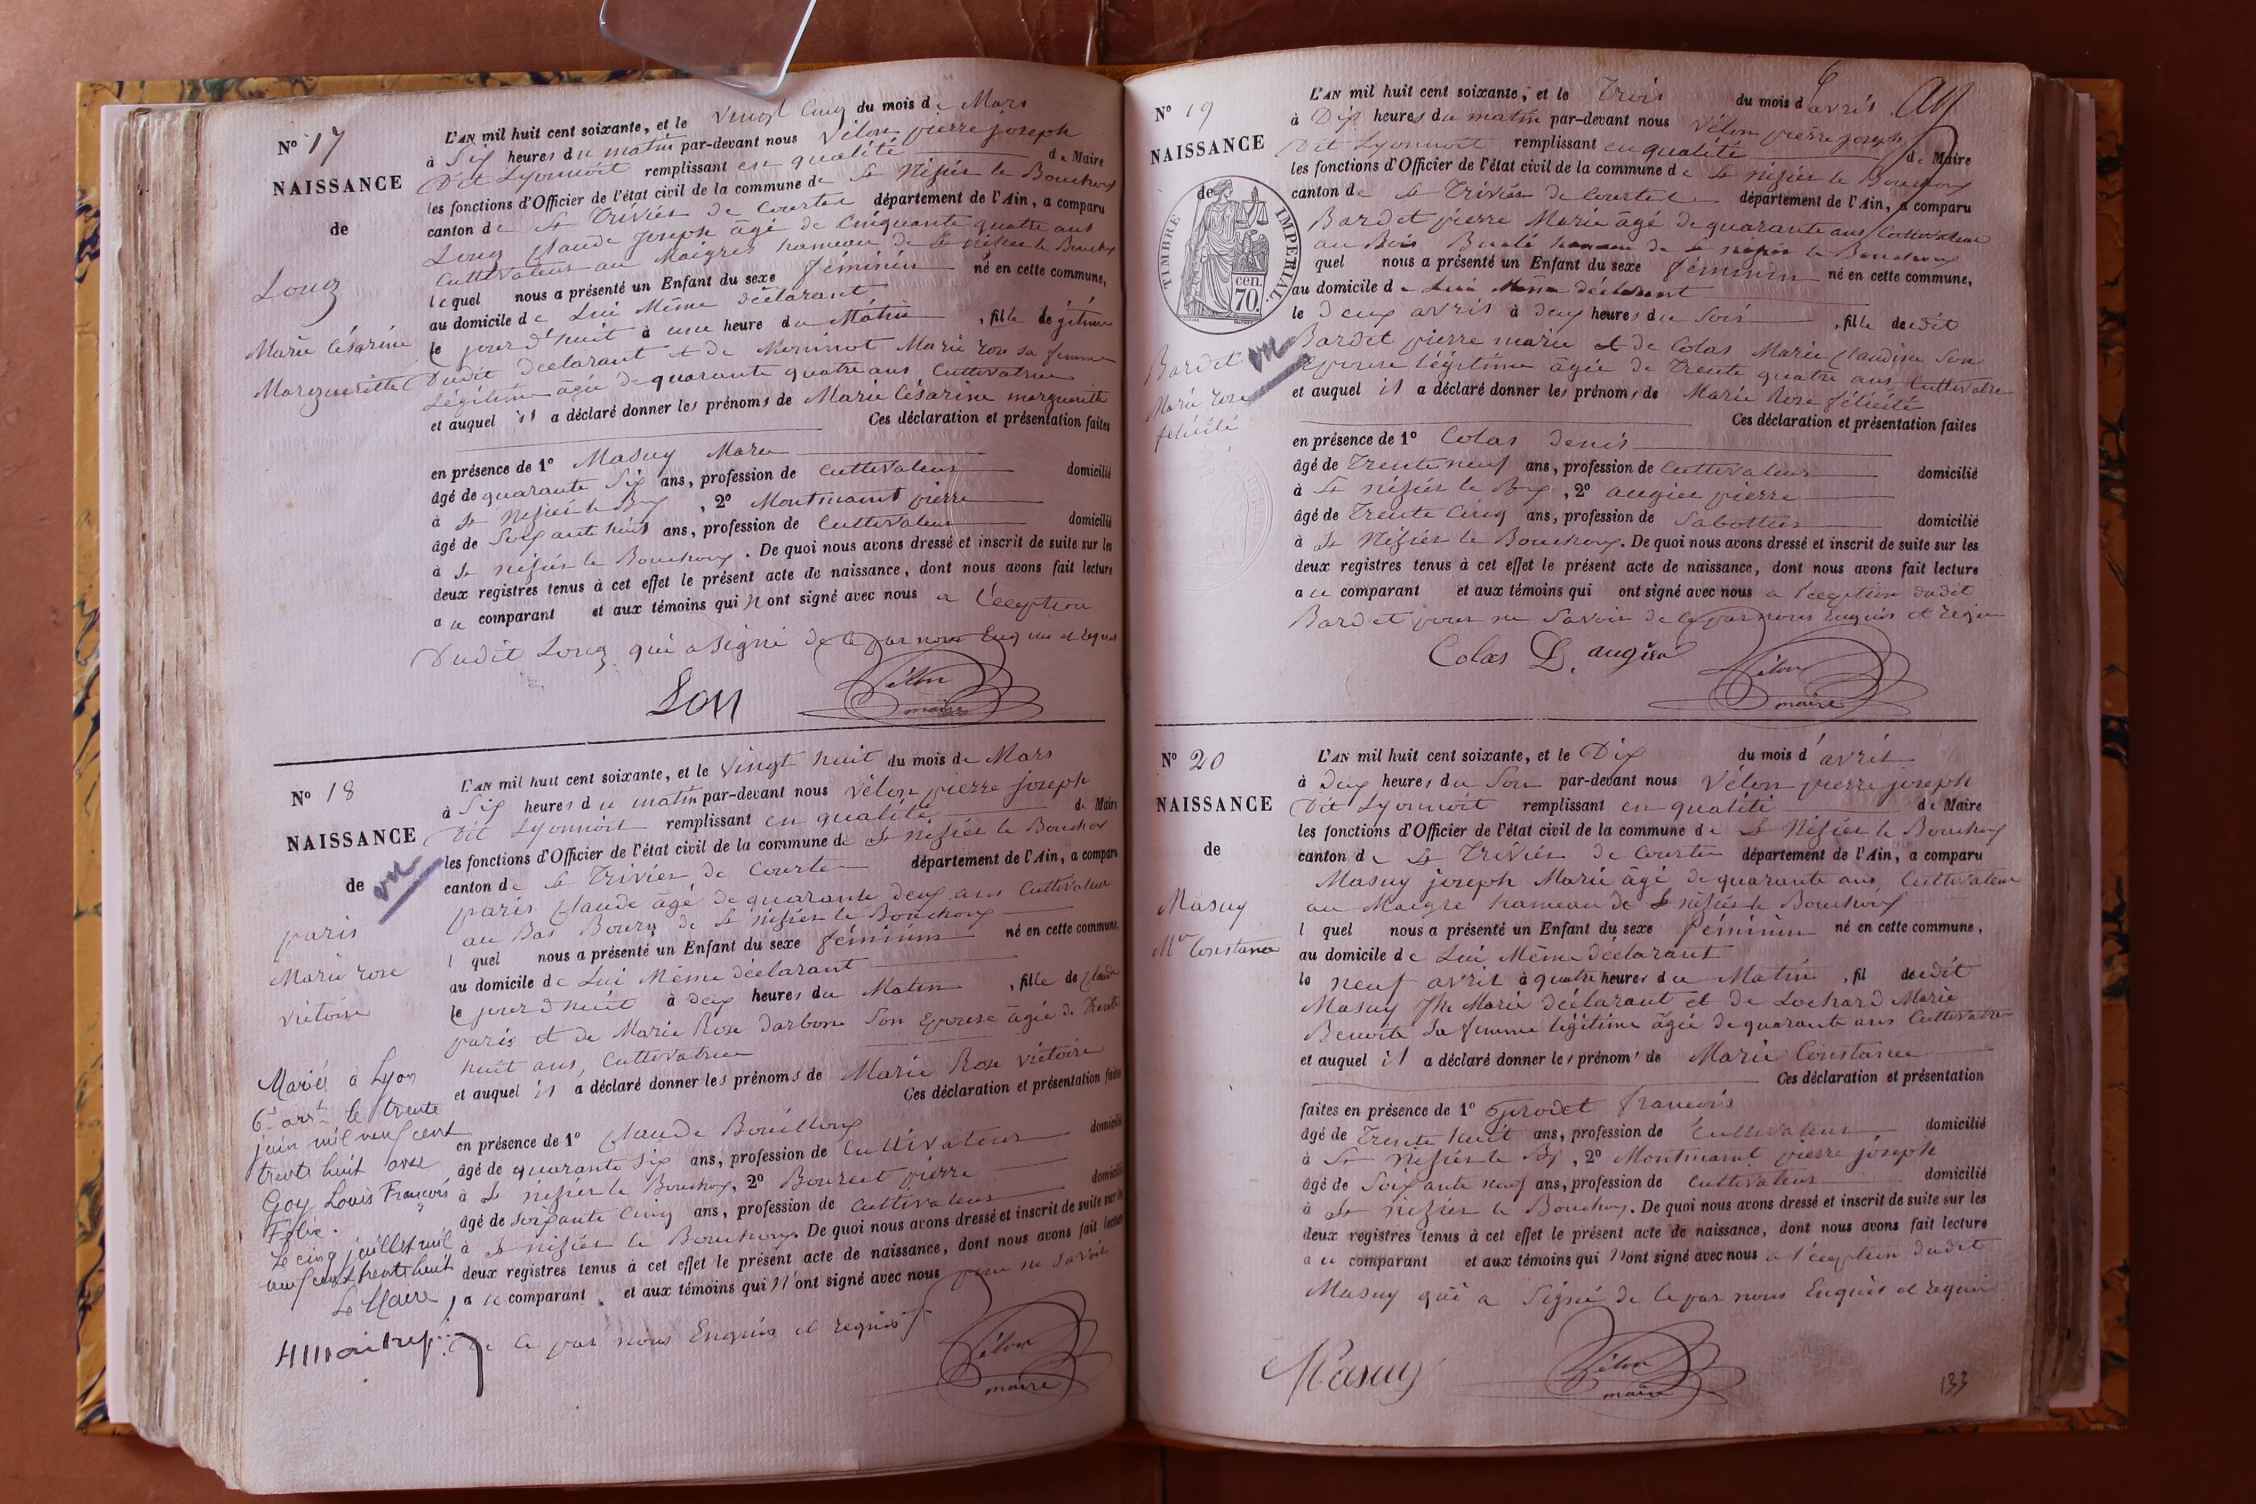 N° 17
NAISSANCE
de
Long
Marie Césarine
Margueritte
L'AN mil huit cent soixante, et le vingt Cinq du mois de Mars
à Six heures du matin par-devant nous Vélon pierre joseph
Dit Lyonnoit remplissant en qualité de Maire
les fonctions d'Officier de l'état civil de la commune de St Nizier le Bouchoux
canton de St Trivier de Courtes département de l'Ain, a comparu
Long Claude Joseph âgé de Cinquante quatre ans
Cultivateur au Maigres hameau de St Nizier le Bouchoux
lequel nous a présenté un Enfant du sexe féminin né en cette commune,
au domicile de Lui Même déclarant
le jour d'huit à une heure du Matin, fille légitime
Dudit déclarant et de Monnot Marie Rose sa femme
Légitime âgée de quarante quatre ans Cultivatrice
et auquel il a déclaré donner les prénoms de Marie Césarine margueritte
Ces déclaration et présentation faites
en présence de 1° Masuy Marie
âgé de quarante Six ans, profession de Cultivateur domicilié
à St Nizier le Bx, 2° Montmaint pierre
âgé de Soixante huit ans, profession de Cultivateur domicilié
à St Nizier le Bouchoux. De quoi nous avons dressé et inscrit de suite sur les
deux registres tenus à cet effet le présent acte de naissance, dont nous avons fait lecture
au comparant et aux témoins qui n'ont signé avec nous a l'éception
Dudit Long qui a signé de ce par nous Enquis et requis
Lon Vélon
maire
N° 18
NAISSANCE
de
vu
paris
Marie rose
victoire
Mariée à Lyon
6e arrt le trente
juin mil neuf cent
trente huit avec
Goy Louis François
Félix.
Le cinq juillet mil
neuf cent trente huit
Le Maire
L'AN mil huit cent soixante, et le vingt huit du mois de Mars
à Six heures du matin par-devant nous Vélon pierre joseph
Dit Lyonnoit remplissant en qualité de Maire
les fonctions d'Officier de l'état civil de la commune de St Nizier le Bouchoux
canton de St Trivier de Courtes département de l'Ain, a comparu
paris Claude âgé de quarante deux ans Cultivateur
au Bas Bourg de St Nizier le Bouchoux
l quel nous a présenté un Enfant du sexe féminin né en cette commune,
au domicile de Lui Même déclarant
le jour d'huit à deux heures du Matin, fille de Claude
paris et de Marie Rose Darbon Son Epouse âgée de Trente
huit ans, Cultivatrice
et auquel il a déclaré donner les prénoms de Marie Rose victoire
Ces déclaration et présentation faites
en présence de 1° Claude Bouilloux
âgé de quarante Six ans, profession de Cultivateur domicilié
à St Nizier le Bouchoux, 2° Bouret pierre
âgé de Soixante Cinq ans, profession de Cultivateur domicilié
à St Nizier le Bouchoux. De quoi nous avons dressé et inscrit de suite sur les
deux registres tenus à cet effet le présent acte de naissance, dont nous avons fait lecture
au comparant et aux témoins qui n'ont signé avec nous pour ne savoir
de ce par nous Enquis et requis
Vélon
maire
N° 19
NAISSANCE
de
TIMBRE IMPERIAL
70 cen.
vu
Bardet
Marie rose
félicité
L'AN mil huit cent soixante, et le Trois du mois d'avril
à Dix heures du matin par-devant nous Vélon pierre joseph
Dit Lyonnoit remplissant en qualité de Maire
les fonctions d'Officier de l'état civil de la commune de St Nizier le Bouchoux
canton de St Trivier de Courtes département de l'Ain, a comparu
Bardet pierre Marie âgé de quarante ans Cultivateur
au Bois Bualé hameau de St Nizier le Bouchoux
quel nous a présenté un Enfant du sexe féminin né en cette commune,
au domicile de Lui Même déclarant
le Deux avril à deux heures du Soir, fille dudit
Bardet pierre marie et de Colas Marie Claudine Son
Epouse légitime âgée de Trente quatre ans, Cultivatrice
et auquel il a déclaré donner les prénoms de Marie Rose félicité
Ces déclaration et présentation faites
en présence de 1° Colas Denis
âgé de Trente neuf ans, profession de Cultivateur domicilié
à St Nizier le Bx, 2° augier pierre
âgé de Trente Cinq ans, profession de Sabottier domicilié
à St Nizier le Bouchoux. De quoi nous avons dressé et inscrit de suite sur les
deux registres tenus à cet effet le présent acte de naissance, dont nous avons fait lecture
au comparant et aux témoins qui ont signé avec nous a l'éception dudit
Bardet pour ne Savoir de ce par nous Enquis et requis
Colas D. augier Vélon
maire
N° 20
NAISSANCE
de
Masuy
Mie Constance
L'AN mil huit cent soixante, et le Dix du mois d'avril
à Deux heures du Soir par-devant nous Vélon pierre joseph
Dit Lyonnoit remplissant en qualité de Maire
les fonctions d'Officier de l'état civil de la commune de St Nizier le Bouchoux
canton de St Trivier de Courtes département de l'Ain, a comparu
Masuy joseph Marie âgé de quarante ans, Cultivateur
au Maigre hameau de St Nizier le Bouchoux
l quel nous a présenté un Enfant du sexe féminin né en cette commune,
au domicile de Lui Même déclarant
le neuf avril à quatre heures du Matin, fil dudit
Masuy Jh Marie déclarant et de Lochard Marie
Benoite Sa femme légitime âgée de quarante ans Cultivatrice
et auquel il a déclaré donner les prénoms de Marie Constance
Ces déclaration et présentation
faites en présence de 1° Grodet françois
âgé de Trente huit ans, profession de Cultivateur domicilié
à St Nizier le Bx, 2° Montmaint pierre joseph
âgé de Soixante neuf ans, profession de Cultivateur domicilié
à St Nizier le Bouchoux. De quoi nous avons dressé et inscrit de suite sur les
deux registres tenus à cet effet le présent acte de naissance, dont nous avons fait lecture
au comparant et aux témoins qui n'ont signé avec nous a l'éception dudit
Masuy qui a Signé de ce par nous Enquis et requis
Masuy Vélon
maire
133